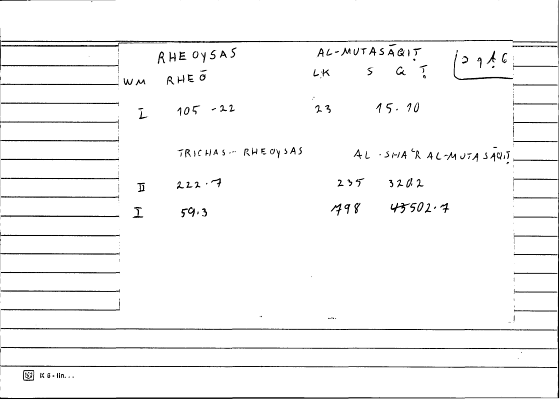 RHEOYSAS AL-MUTASĀQIṬ
WM RHEŌ LK S Q Ṭ
I 105-22 23 15.10
TRICHAS-RHEOYSAS AL-SHAʿR AL-MUTASĀQIṬ
II 222.7 235 3202
I 59.3 798 43502.7
K 6 - lin...